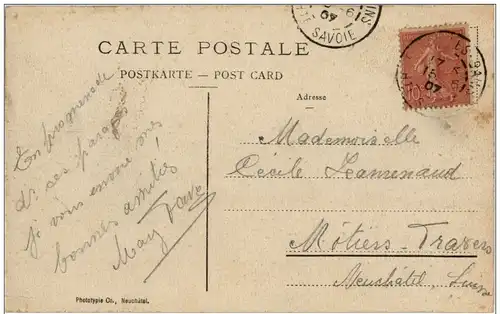 CARTE POSTALE
POSTKARTE — POST CARD
Adresse
SAVOIE
07
En promenade
de ces parages
je vous envoie mes
bonnes amitiés!
May
Mademoiselle
Cécile Jeanrenaud
Môtiers-Travers
Neuchâtel, Suisse
Phototypie Co., Neuchâtel.